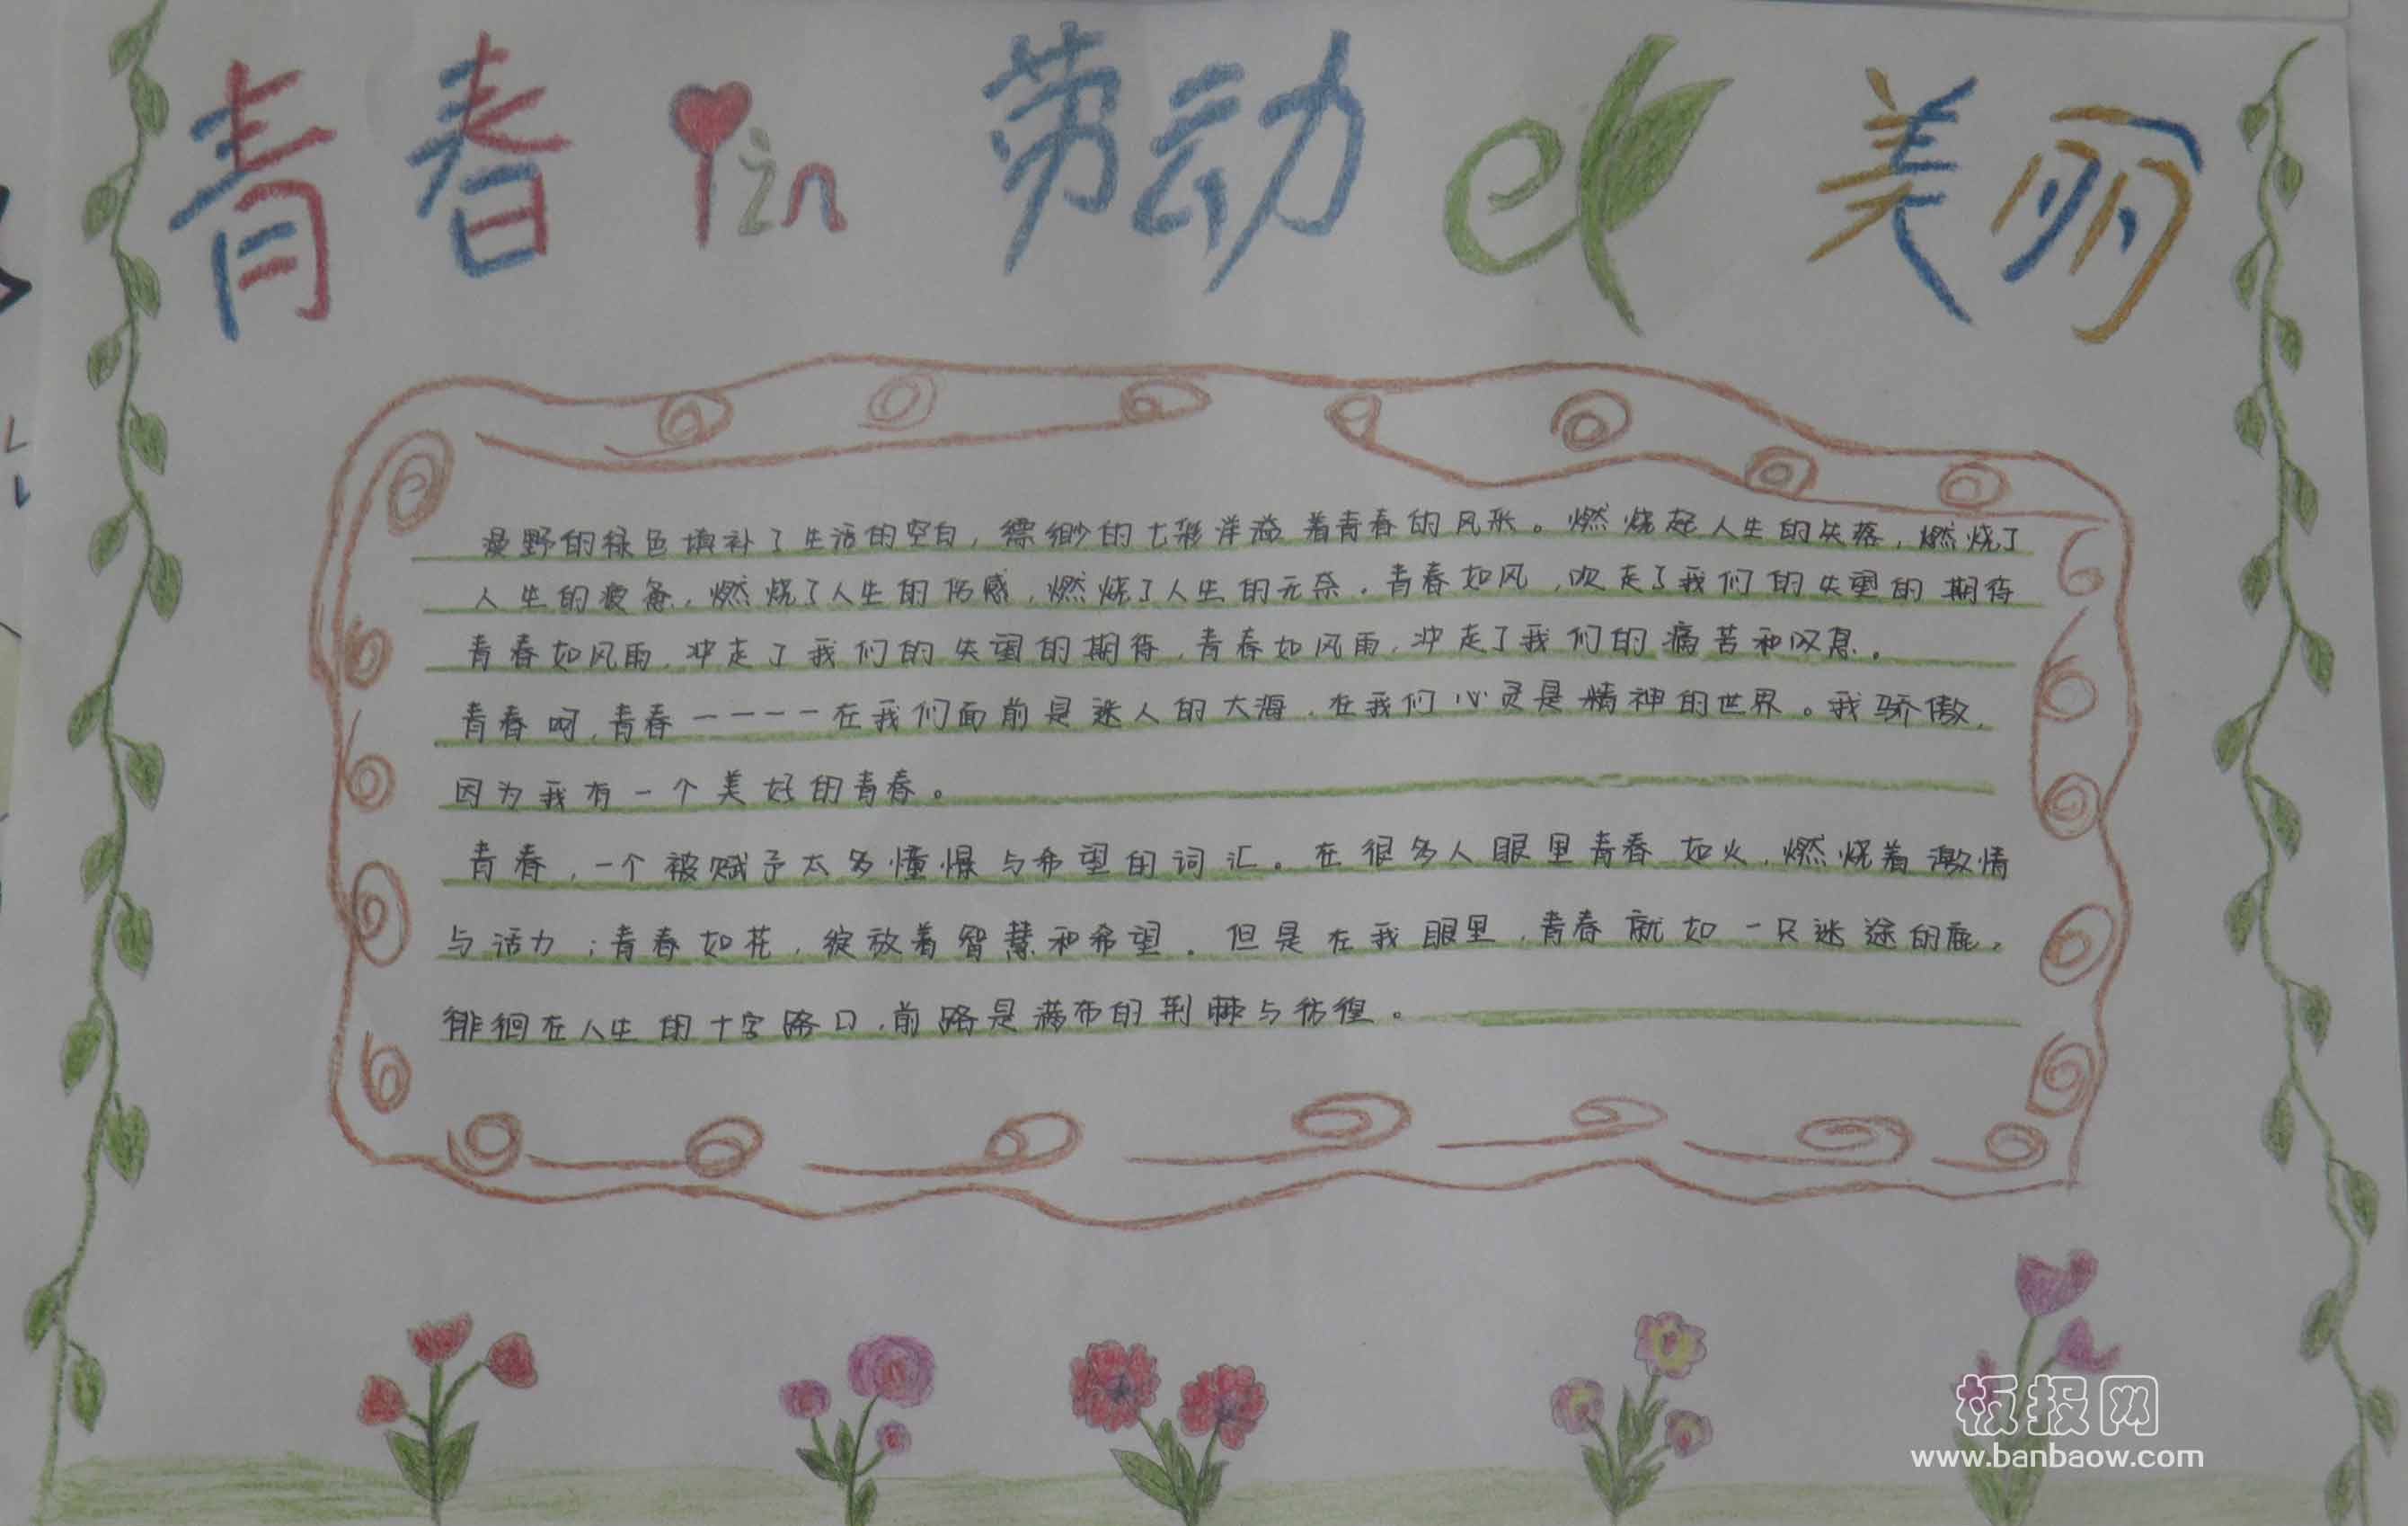 青春 in 劳动 et 美丽
漫野的绿色填补了生活的空白，缥缈的七彩洋溢着青春的风采。燃烧起人生的失落，燃烧了
人生的疲惫，燃烧了人生的伤感，燃烧了人生的无奈。青春如风，吹走了我们的失望的期待
青春如风雨，冲走了我们的失望的期待，青春如风雨，冲走了我们的痛苦和叹息。
青春呵，青春－－－－在我们面前是迷人的大海，在我们心灵是精神的世界。我骄傲，
因为我有一个美好的青春。
青春，一个被赋予太多憧憬与希望的词汇。在很多人眼里青春如火，燃烧着激情
与活力；青春如花，绽放着智慧和希望。但是在我眼里，青春就如一只迷途的鹿，
徘徊在人生的十字路口，前路是满布的荆棘与彷徨。
板报网
www.banbaow.com